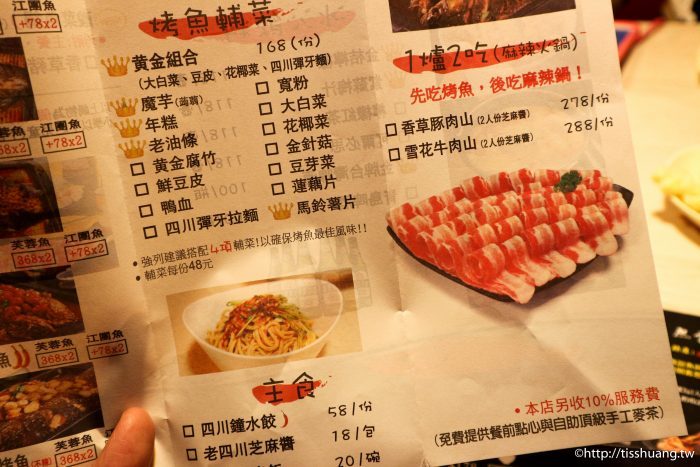 江團魚
+78x2
江團魚
+78x2
芙蓉魚
368x2
江團魚
+78x2
芙蓉魚
368x2
江團魚
+78x2
芙蓉魚
江團魚
烤魚輔菜
黃金組合 168(份)
(大白菜、豆皮、花椰菜、四川彈牙麵)
魔芋(蒟蒻)
年糕
老油條
黃金腐竹
鮮豆皮
鴨血
四川彈牙拉麵
寬粉
大白菜
花椰菜
金針菇
豆芽菜
蓮藕片
馬鈴薯片
•強列建議搭配4項輔菜!以確保烤魚最佳風味!!
•輔菜每份48元
主食
四川鐘水餃 58/份
老四川芝麻醬 18/包
20/碗
1爐2吃(麻辣火鍋)
先吃烤魚,後吃麻辣鍋!
278/份
香草豚肉山(2人份芝麻醬)
288/份
雪花牛肉山(2人份芝麻醬)
•本店另收10%服務費
(免費提供餐前點心與自助頂級手工麥茶)
©http://tisshuang.tw